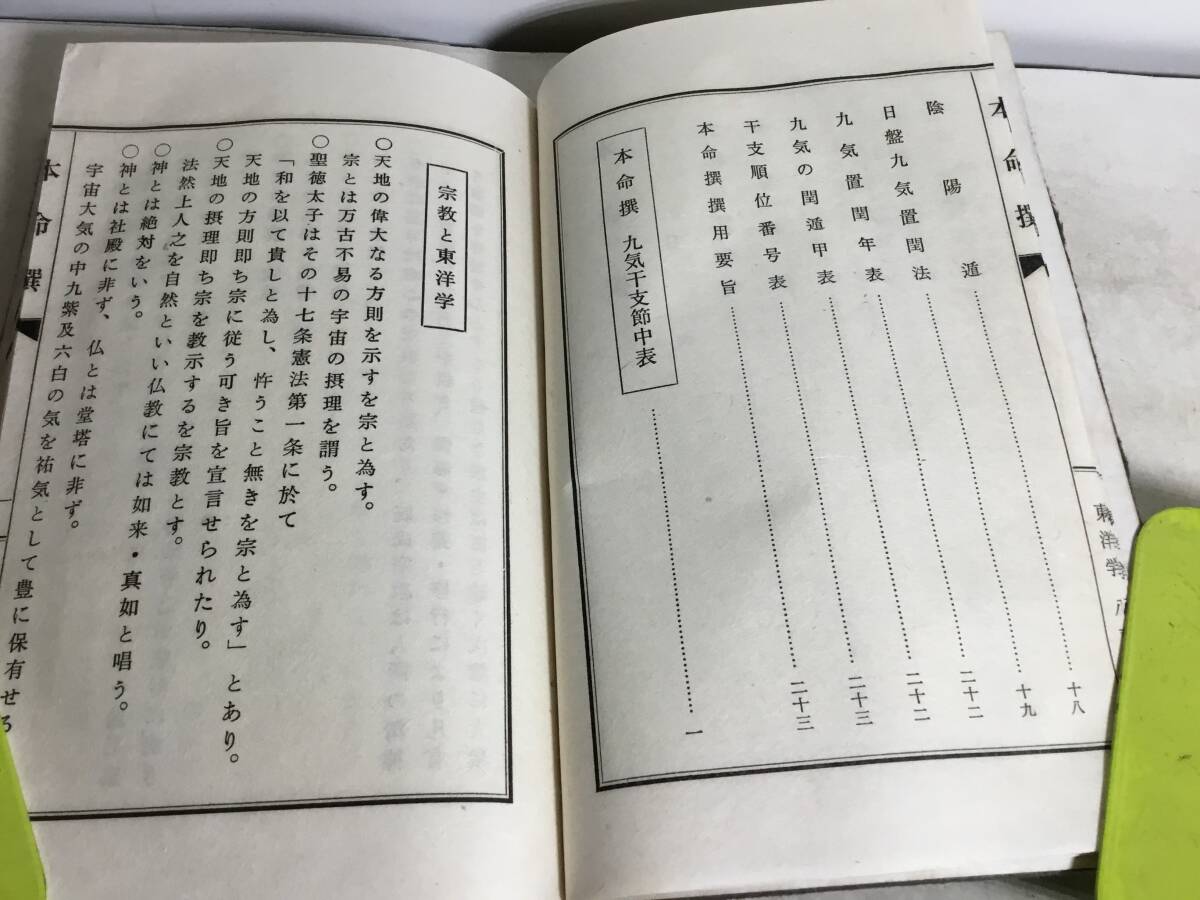 本命撰
東洋学
陰陽遁………………十八
日盤九気置閏法………………十九
九気置閏年表………………二十二
九気の閏遁甲表………………二十二
干支順位番号表………………二十三
本命撰撰用要旨………………二十三
本命撰 九気干支節中表………………一
宗教と東洋学
○天地の偉大なる方則を示すを宗と為す。
宗とは万古不易の宇宙の摂理を謂う。
○聖徳太子はその十七条憲法第一条に於て
「和を以て貴しと為し、忤うこと無きを宗と為す」とあり。
天地の方則即ち宗に従う可き旨を宣言せられたり。
○天地の摂理即ち宗を教示するを宗教とす。
法然上人之を自然といい仏教にては如来・真如と唱う。
○神とは絶対をいう。
○神とは社殿に非ず、仏とは堂塔に非ず。
宇宙大気の中九紫及六白の気を祐気として豊に保有せろ
本命撰